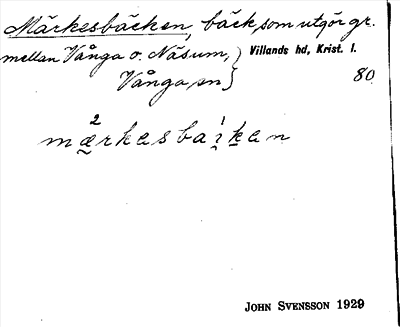 Märkesbäcken, bäck, som utgör gr.
mellan Vånga o. Näsum, } Villands hd, Krist. l.
Vånga sn } 80
2 1
mærkesbaiken
JOHN SVENSSON 1929